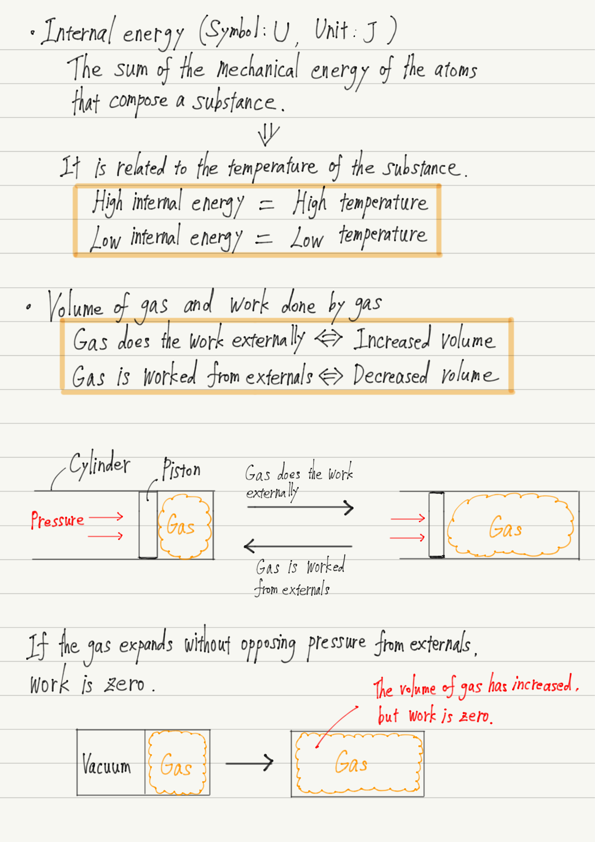 ・Internal energy (Symbol: U, Unit: J)
The sum of the mechanical energy of the atoms
that compose a substance.
⇓
It is related to the temperature of the substance.
High internal energy = High temperature
Low internal energy = Low temperature
・Volume of gas and work done by gas
Gas does the work externally ⇔ Increased volume
Gas is worked from externals ⇔ Decreased volume
Cylinder
Piston
Gas does the work
externally
Pressure
Gas
Gas
Gas is worked
from externals
If the gas expands without opposing pressure from externals,
work is zero.
The volume of gas has increased,
but work is zero.
Vacuum
Gas
Gas